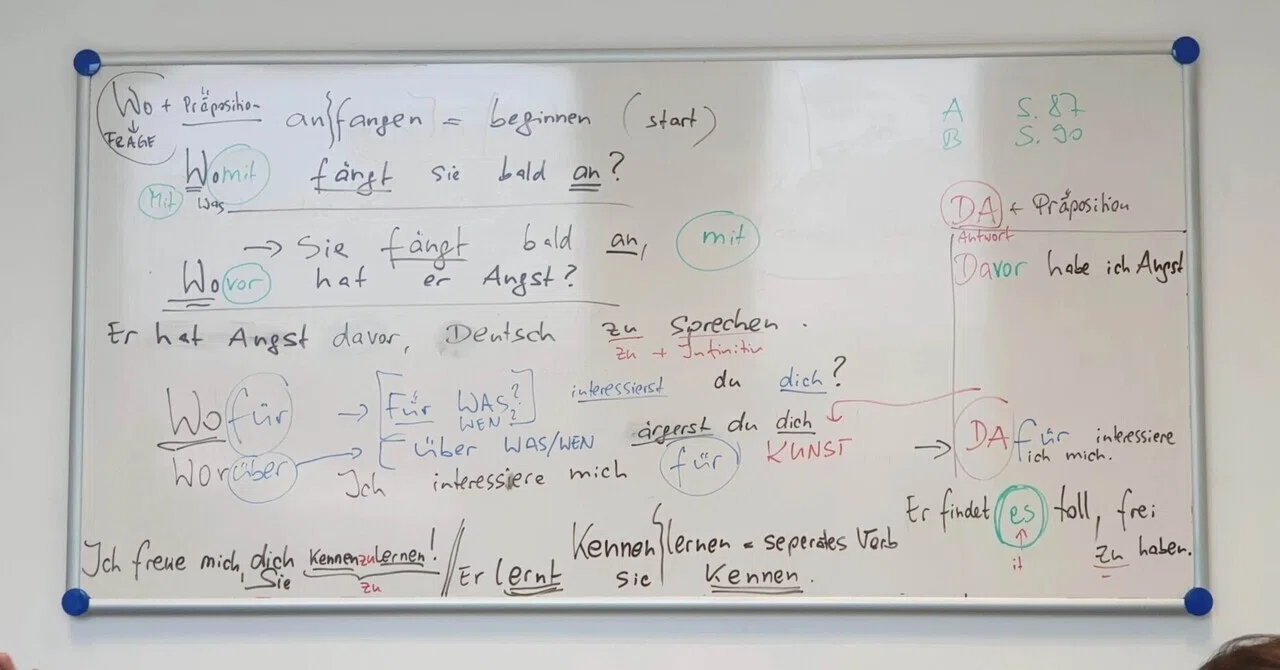 Wo + Präposition
↓
FRAGE
an}fangen = beginnen (start)
Womit fängt sie bald an?
Mit Was
→ Sie fängt bald an, mit
Wovor hat er Angst?
Er hat Angst davor, Deutsch zu sprechen.
zu + Infinitiv
Wofür → [Für WAS? WEN?] interessierst du dich?
Worüber → über WAS/WEN ärgerst du dich
Ich interessiere mich für KUNST
Ich freue mich, dich Kennenzulernen!
Sie zu
// Er lernt sie Kennen.
Kennen}lernen = seperates Verb
A S. 87
B S. 90
DA + Präposition
Antwort
Davor habe ich Angst
→ DAfür interessiere
ich mich.
Er findet es toll, frei
↑
it
zu haben.